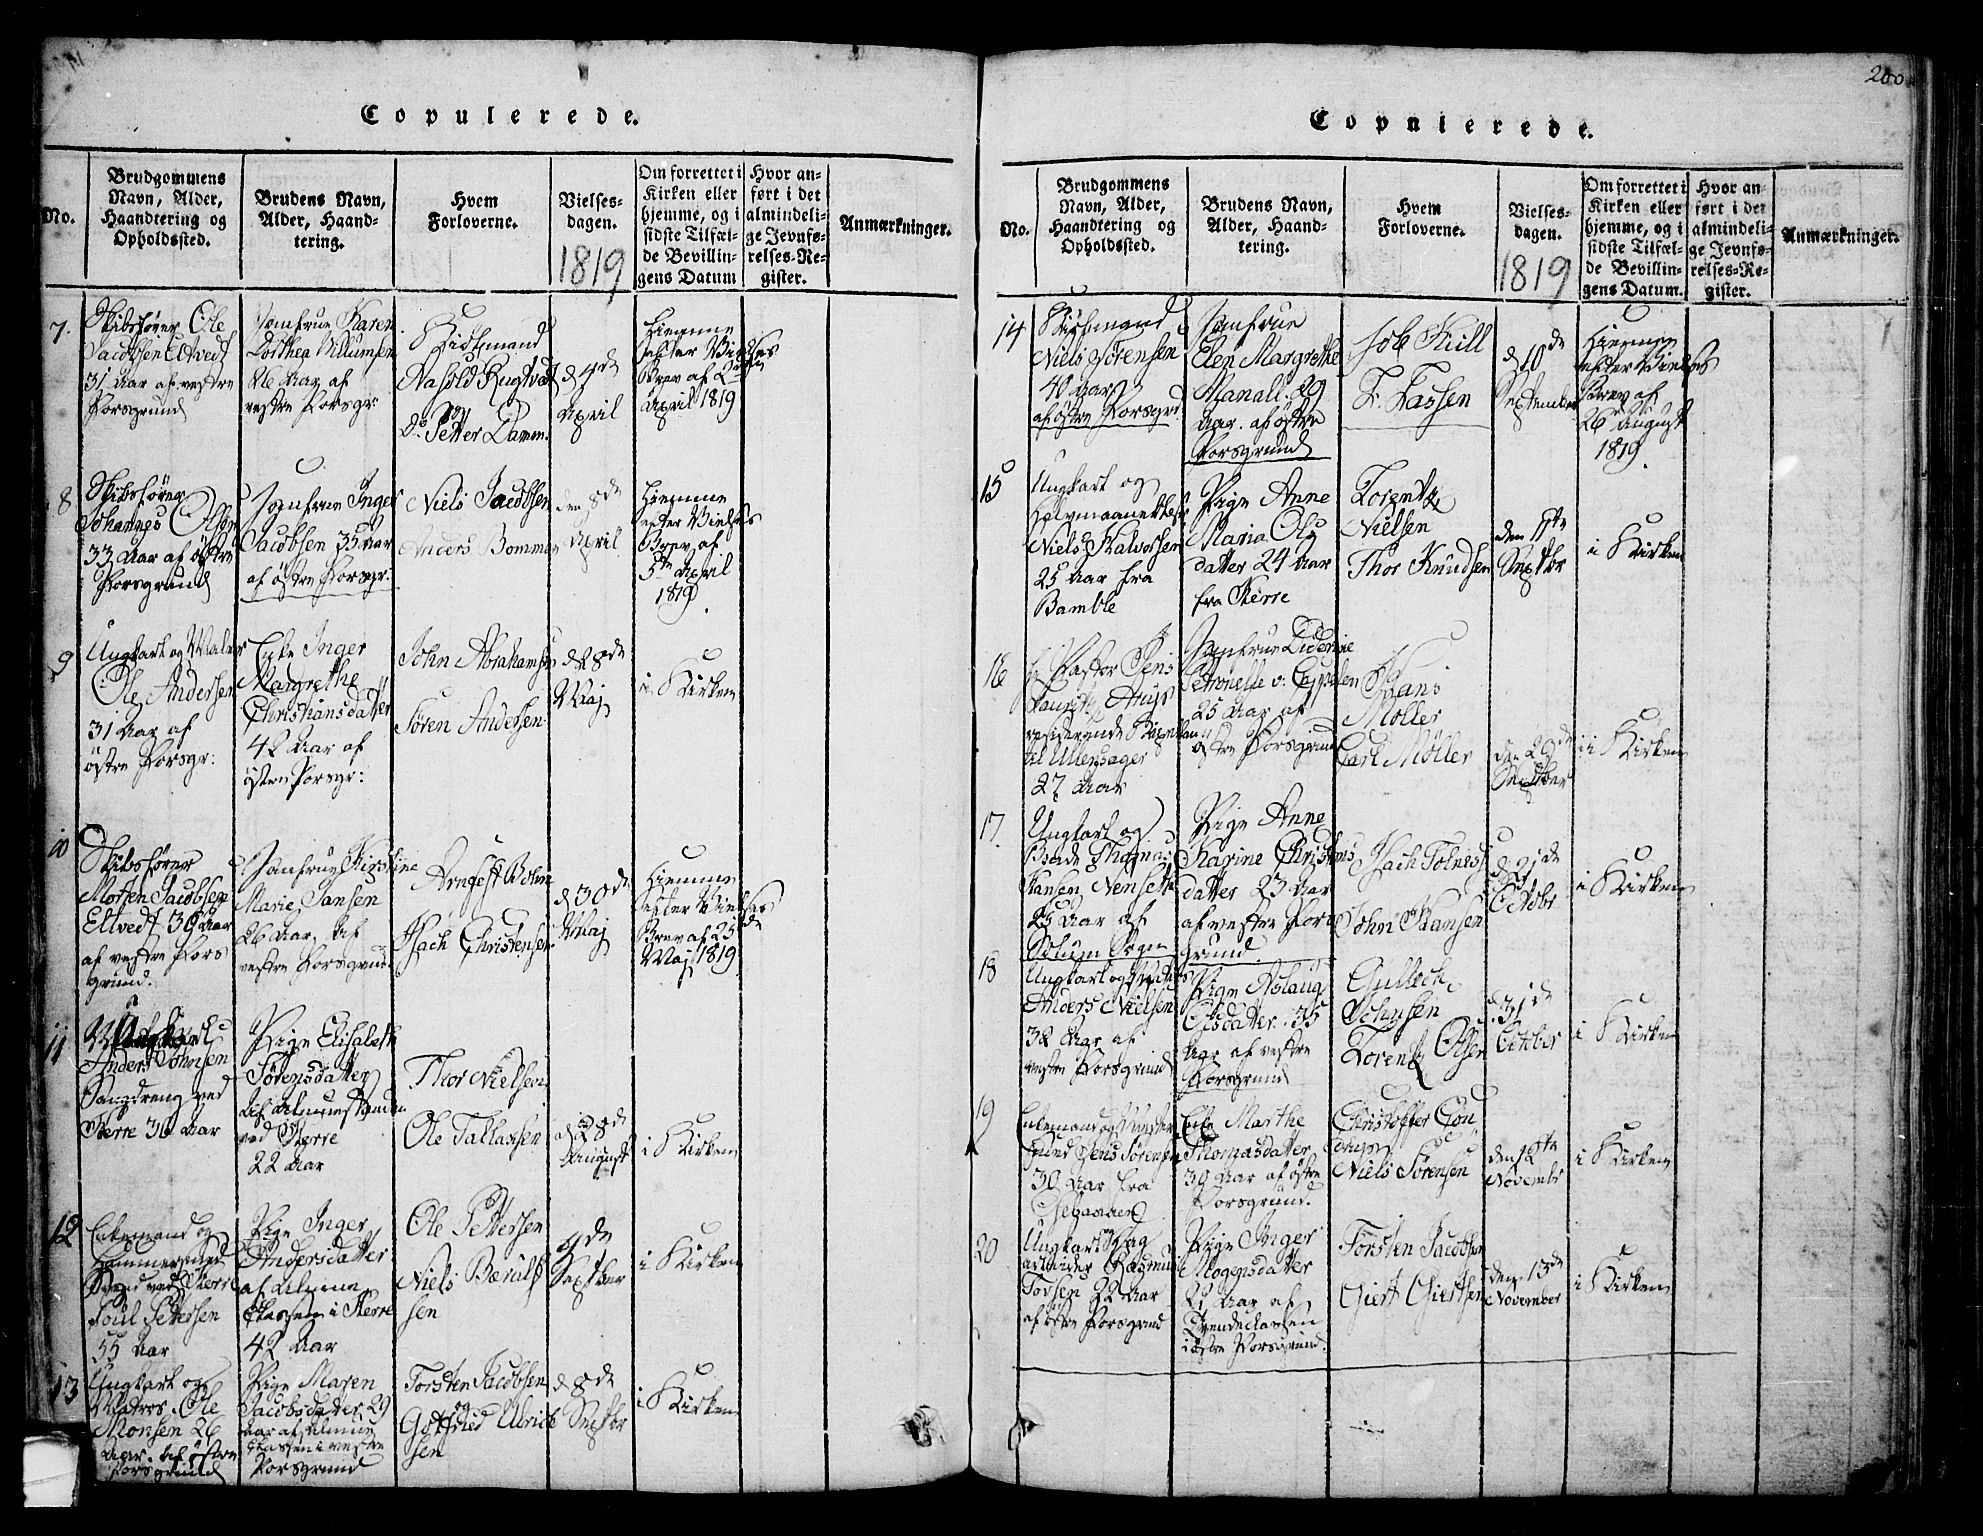 Copulerede.
No.
Brudgommens
Navn, Alder,
Haandtering og
Opholdssted.
Brudens Navn,
Alder, Haand-
tering.
Hvem
Forloverne.
Vielses-
dagen.
1819
Om forrettet i
Kirken eller
hjemme, og i
sidste Tilfæl-
de Bevillin-
gens Datum
Hvor an-
ført i det
almindeli-
ge Jevnfø-
relses-Re-
gister.
Anmærkninger.
7.
Skibsfører Ole
Jacobsen Eltvedt
31 Aar af vestre
Porsgrund
Jomfrue Karen
Dorthea Willumsen
26 Aar af
vestre Porsgr:
Skibsmand
Aasold Rugtvedt
og
Do Petter Damm.
d 4de
April
Hiemme
efter Vielses
Brev af 2den
April 1819
8
Skibsfører
Johannes Olsen
33 Aar af østre
Porsgrund
Jomfrue Inger
Jacobsen 35 Aar
af østre Porsgr:
Niels Jacobsen
Anders Bommen
den 8de
April
Hiemme
efter Vielses
Brev af
5te April
1819
9
Ungkarl og Maler
Ole Andersen
31 Aar af
østre Porsgr:
Enke Inger
Margrethe
Christiansdatter
42 Aar af
østre Porsgr:
John Abrahamsen
Søren Andersen
d 28de
Maj
i Kirken
10
Skibsfører
Morten Jacobsen
Eltvedt 39 Aar
af vestre Pors
grund.
Jomfrue Kirstine
Marie Jansen
26 Aar. af
vestre Porsgrund
Arngest Bohn
Isach Christensen
d 30de
Maj
Hiemme
efter Vielses
Brev af 25de
Maj 1819
11
Anders Johnsen
ved
Herre 30 Aar
Pige Elisabeth
Sørensdatter
af Almuestanden
ved Herre
22 Aar
Thor Nielsen
Ole Tallaksen
d 28de
August
i Kirken
12
Enkemand og
Hammersmed
Svend ved Herre
Poul Pettersen
55 Aar
Pige Inger
Andersdatter
af Almue
Classen i Herre
42 Aar
Ole Pettersen
Niels Bærulf
sen
9de
Septber
i Kirken
13
Ungkarl og
Matros Ole
Monsen 26
Aar. af østre
Porsgrund
Pige Maren
Jacobsdatter 29
Aar af Almue
Classen i vestre
Porsgrund
Torsten Jacobsen
og
Gotfried Ulrich
sen
d 8de
Septbr
i Kirken
200
Copulerede.
No.
Brudgommens
Navn, Alder,
Haandtering og
Opholdssted.
Brudens Navn,
Alder, Haand-
tering.
Hvem
Forloverne.
Vielses-
dagen.
1819
Om forrettet i
Kirken eller
hjemme, og i
sidste Tilfæl-
de Bevillin-
gens Datum.
Hvor an-
ført i det
almindeli-
ge Jevnfø-
relses-Re-
gister.
Anmærkninger.
14
Kiøbmand
Niels Sørensen
40 Aar
af østre Porsgrd
Jomfrue
Elen Margrethe
Manall. 29
Aar. af østre
Porsgrund
Job Krill
L. Lassen
d 10de
September
Hiemme
efter Vielses
Brev af
26 August
1819
15
Ungkarl og
Niels Halvorsen
25 Aar fra
Bamble
Pige Anne
Maria Ols
datter 24 Aar
fra Herre
Lorentz
Nielsen
Thor Knudsen
den 11te
Septbr
i Kirken
16
Hr Pastor Jens
Lauritz Arup
residerende Capelan
til Ullensager
27 Aar
Jomfrue Diderike
Petronelle v: Cappelen
25 Aar af
østre Porsgrund
Hans
Møller
Carl Møller
den 29de
Septber
i Kirken
17.
Ungkarl og
Thomas
Hansen Nenseth
25 Aar af
Solum Sogn
Pige Anne
Karine Christens
datter 23 Aar
af vestre Pors
grund.
Isach Tolness
John Hansen
d 21de
Octobr
i Kirken
18
Ungkarl og
Anders Nielsen
32 Aar af
vestre Porsgrund
Pige Aslaug
Eisdatter. 35
Aar af vestre
Porsgrund
Gullech
Johnsen
Lorentz Olsen
d. 31de
October
i Kirken
19
Enkemand og
Jens Sørensen
30 Aar fra
Enke Marthe
Thomasdatter
39 Aar af østre
Porsgrund.
Christoffer Con
drup
Niels Sørensen
den 12te
Novembr
i Kirken
20
Ungkarl og Dag
arbeider Rasmus
Tovsen 22 Aar
af østre Porsgrund
Pige Inger
Mogensdatter
21 Aar af
Tyendeclassen
i østre Porsgrund.
Torsten Jacobsen
Giert Giertsen
den 13de
November
i Kirken